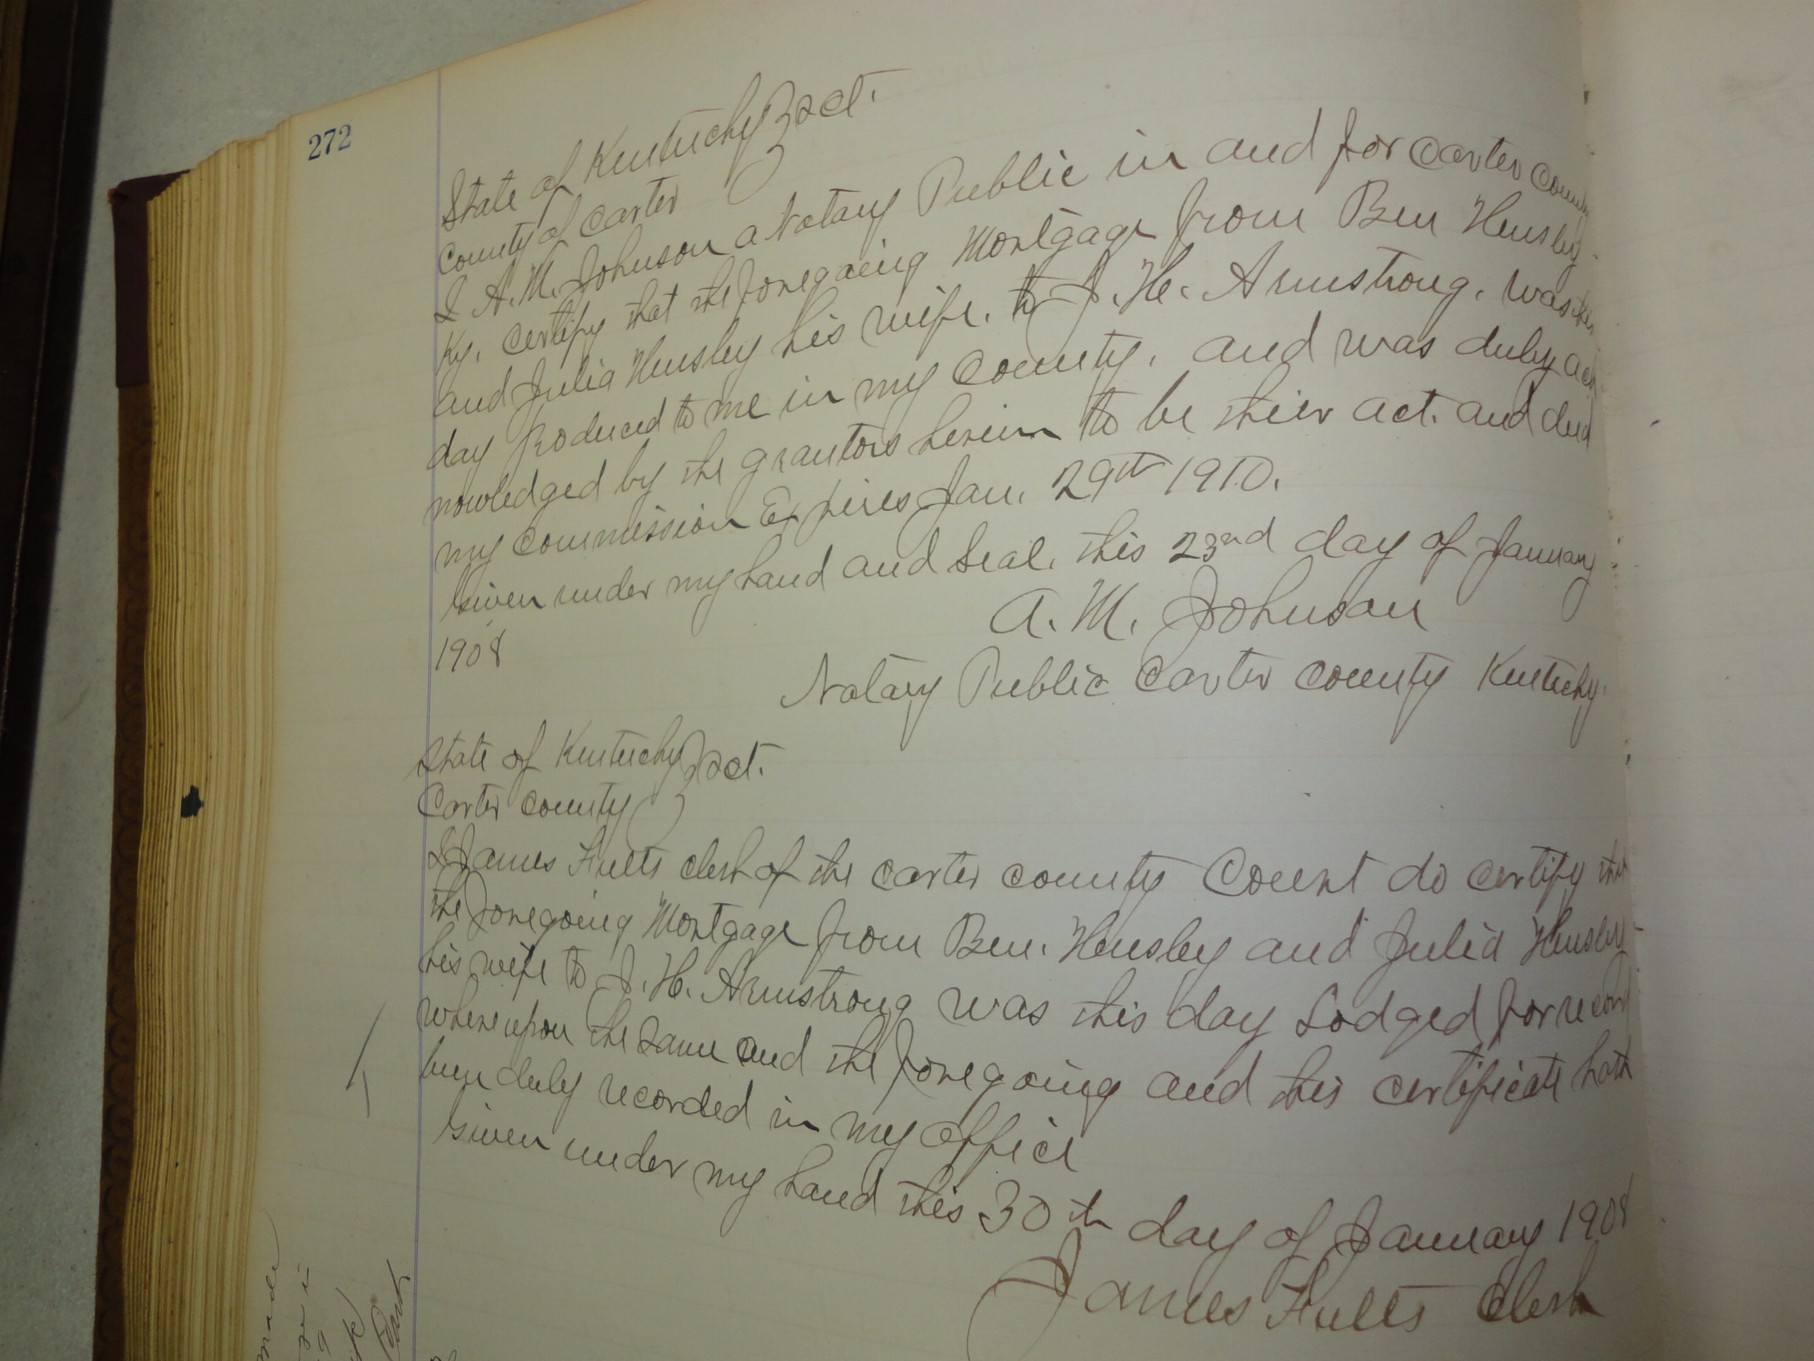 272
State of Kentucky } sct.
County of Carter
I A. M. Johnson a Notary Public in and for Carter County
Ky. Certify that the foregoing Mortgage from Ben Hensley
and Julia Hensley his wife. to J. H. Armstrong. was this
day Produced to me in my County. and was duly ack
nowledged by the grantors herein to be thier act. and deed
my Commission Expires Jan. 29th 1910.
Given under my hand and Seal. this 23rd day of January
1908
A. M. Johnson
Notary Public Carter County Kentucky.
State of Kentucky } sct.
Carter County
I James Fults clerk of the Carter County Court do certify that
the foregoing Mortgage from Ben. Hensley and Julia Hensley
his wife to J. H. Armstrong was this day Lodged for record
whereupon the same and the foregoing and this certificate hath
been duly recorded in my office
Given under my hand this 30th day of January 1908
James Fults Clerk